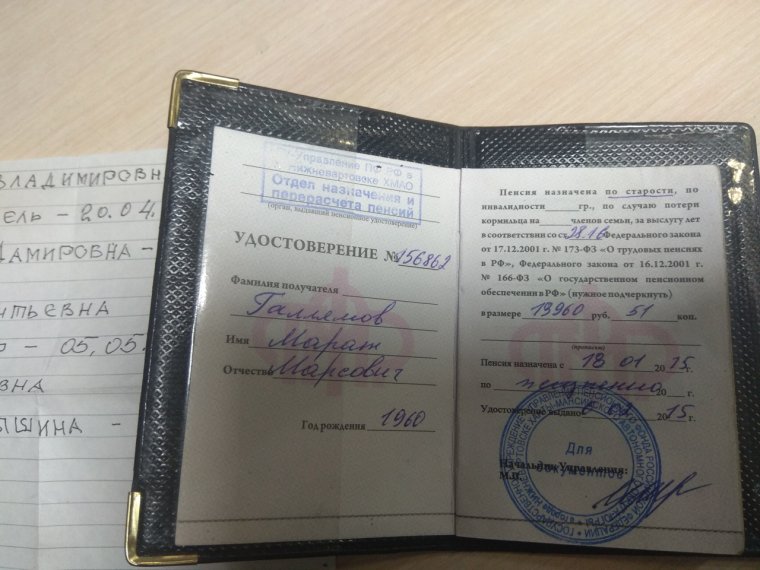 ВЛАДИМИРОВН
ЕЛЬ - 20.04.
ДАМИРОВНА -
НТЬЕВНА
- 05.05.
ВНА
ЫШИНА -
Управление ПФ РФ в
Нижневартовске ХМАО
Отдел назначения и
перерасчета пенсий
(орган, выдавший пенсионное удостоверение)
УДОСТОВЕРЕНИЕ № 156862
Фамилия получателя
Галлямов
Имя Марат
Отчество Марсович
Год рождения 1960
Пенсия назначена по старости, по
инвалидности гр., по случаю потери
кормильца на членов семьи, за выслугу лет
в соответствии со ст. 28.1 б Федерального закона
от 17.12.2001 г. № 173-ФЗ «О трудовых пенсиях
в РФ», Федерального закона от 16.12.2001 г.
№ 166-ФЗ «О государственном пенсионном
обеспечении в РФ» (нужное подчеркнуть)
в размере 13960 руб. 51 коп.
(прописью)
Пенсия назначена с 18 01 2015г.
по пожизненно 20 г.
Удостоверение выдано 2015г.
Для
документов
Начальник Управления:
М.П.